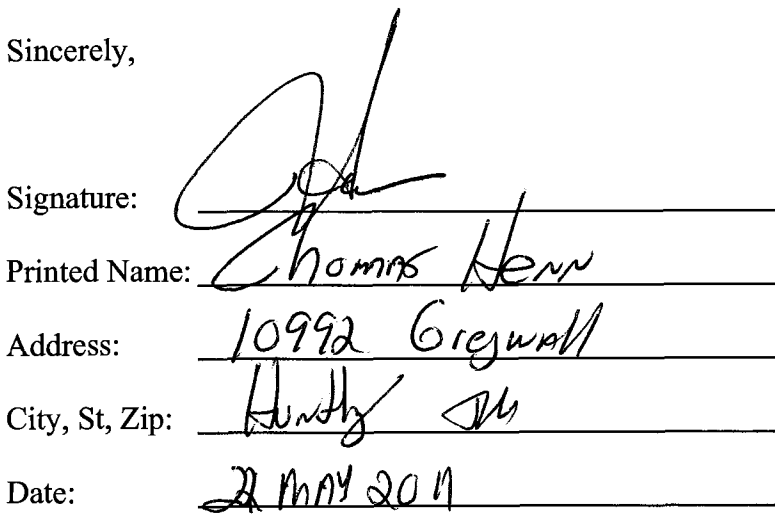 Sincerely,
Signature:
Printed Name: Thomas Henn
Address: 10992
City, St, Zip: Huntly
Date: MAY 2011